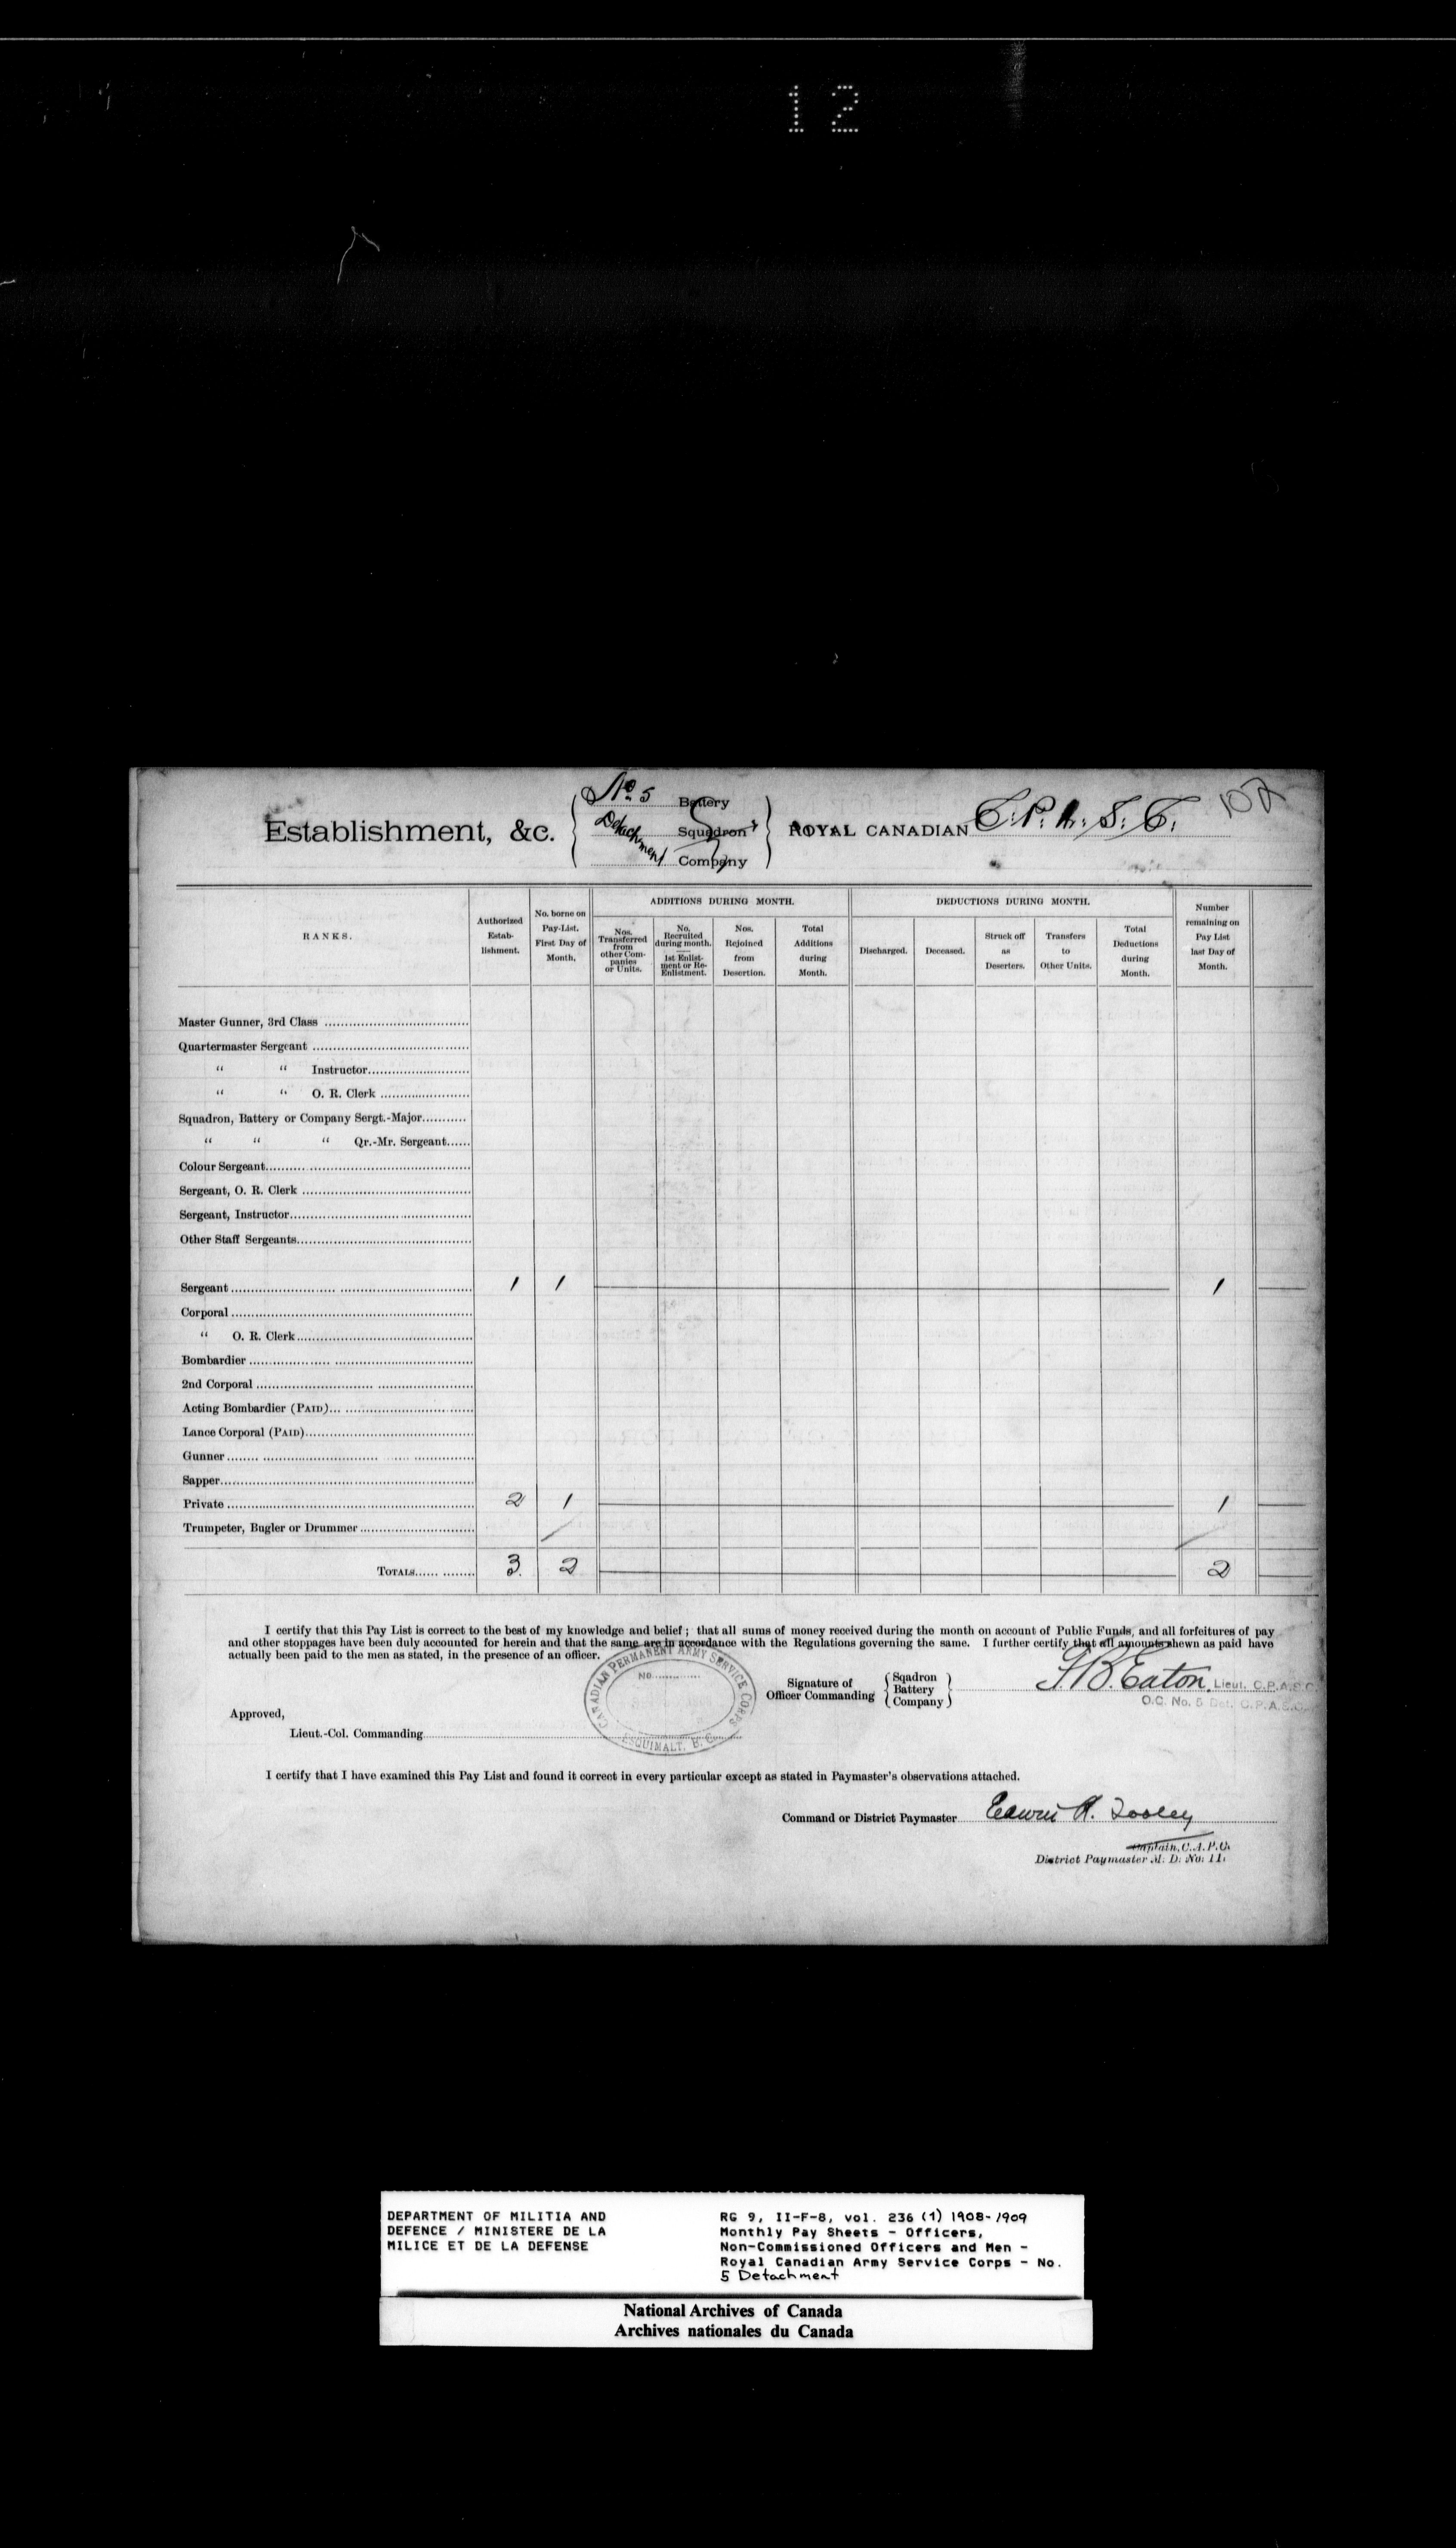 12
No 5 Battery
Establishment, &c. Detachment Squadron ROYAL CANADIAN C.P.A.S.C. 102
Company
RANKS.
Authorized Estab- lishment.
No. borne on Pay-List, First Day of Month.
ADDITIONS DURING MONTH.
Nos. Transferred from other Com- panies or Units.
No. Recruited during month. 1st Enlist- ment or Re- Enlistment.
Nos. Rejoined from Desertion.
Total Additions during Month.
DEDUCTIONS DURING MONTH.
Discharged.
Deceased.
Struck off as Deserters.
Transfers to Other Units.
Total Deductions during Month.
Number remaining on Pay List last Day of Month.
Master Gunner, 3rd Class
Quartermaster Sergeant
" " Instructor
" " O. R. Clerk
Squadron, Battery or Company Sergt.-Major
" " " Qr.-Mr. Sergeant
Colour Sergeant
Sergeant, O. R. Clerk
Sergeant, Instructor
Other Staff Sergeants
Sergeant 1 1 1
Corporal
" O. R. Clerk
Bombardier
2nd Corporal
Acting Bombardier (PAID)
Lance Corporal (PAID)
Gunner
Sapper
Private 2 1 1
Trumpeter, Bugler or Drummer
TOTALS 3 2 2
I certify that this Pay List is correct to the best of my knowledge and belief; that all sums of money received during the month on account of Public Funds, and all forfeitures of pay
and other stoppages have been duly accounted for herein and that the same are in accordance with the Regulations governing the same. I further certify that all amounts shewn as paid have
actually been paid to the men as stated, in the presence of an officer.
CANADIAN PERMANENT ARMY SERVICE CORPS
NO.
ESQUIMALT. B. C.
Signature of Officer Commanding { Sqadron Battery Company } Eaton, Lieut. C.P.A.S.C.
O.C. No. 5 Det. C.P.A.S.C.
Approved,
Lieut.-Col. Commanding
I certify that I have examined this Pay List and found it correct in every particular except as stated in Paymaster's observations attached.
Command or District Paymaster Edwin A. Tooley
Captain, C.A.P.C.
District Paymaster M. D. No. 11.
DEPARTMENT OF MILITIA AND
DEFENCE / MINISTERE DE LA
MILICE ET DE LA DEFENSE
RG 9, II-F-8, vol. 236 (1) 1908-1909
Monthly Pay Sheets - Officers,
Non-Commissioned Officers and Men -
Royal Canadian Army Service Corps - No.
5 Detachment
National Archives of Canada
Archives nationales du Canada